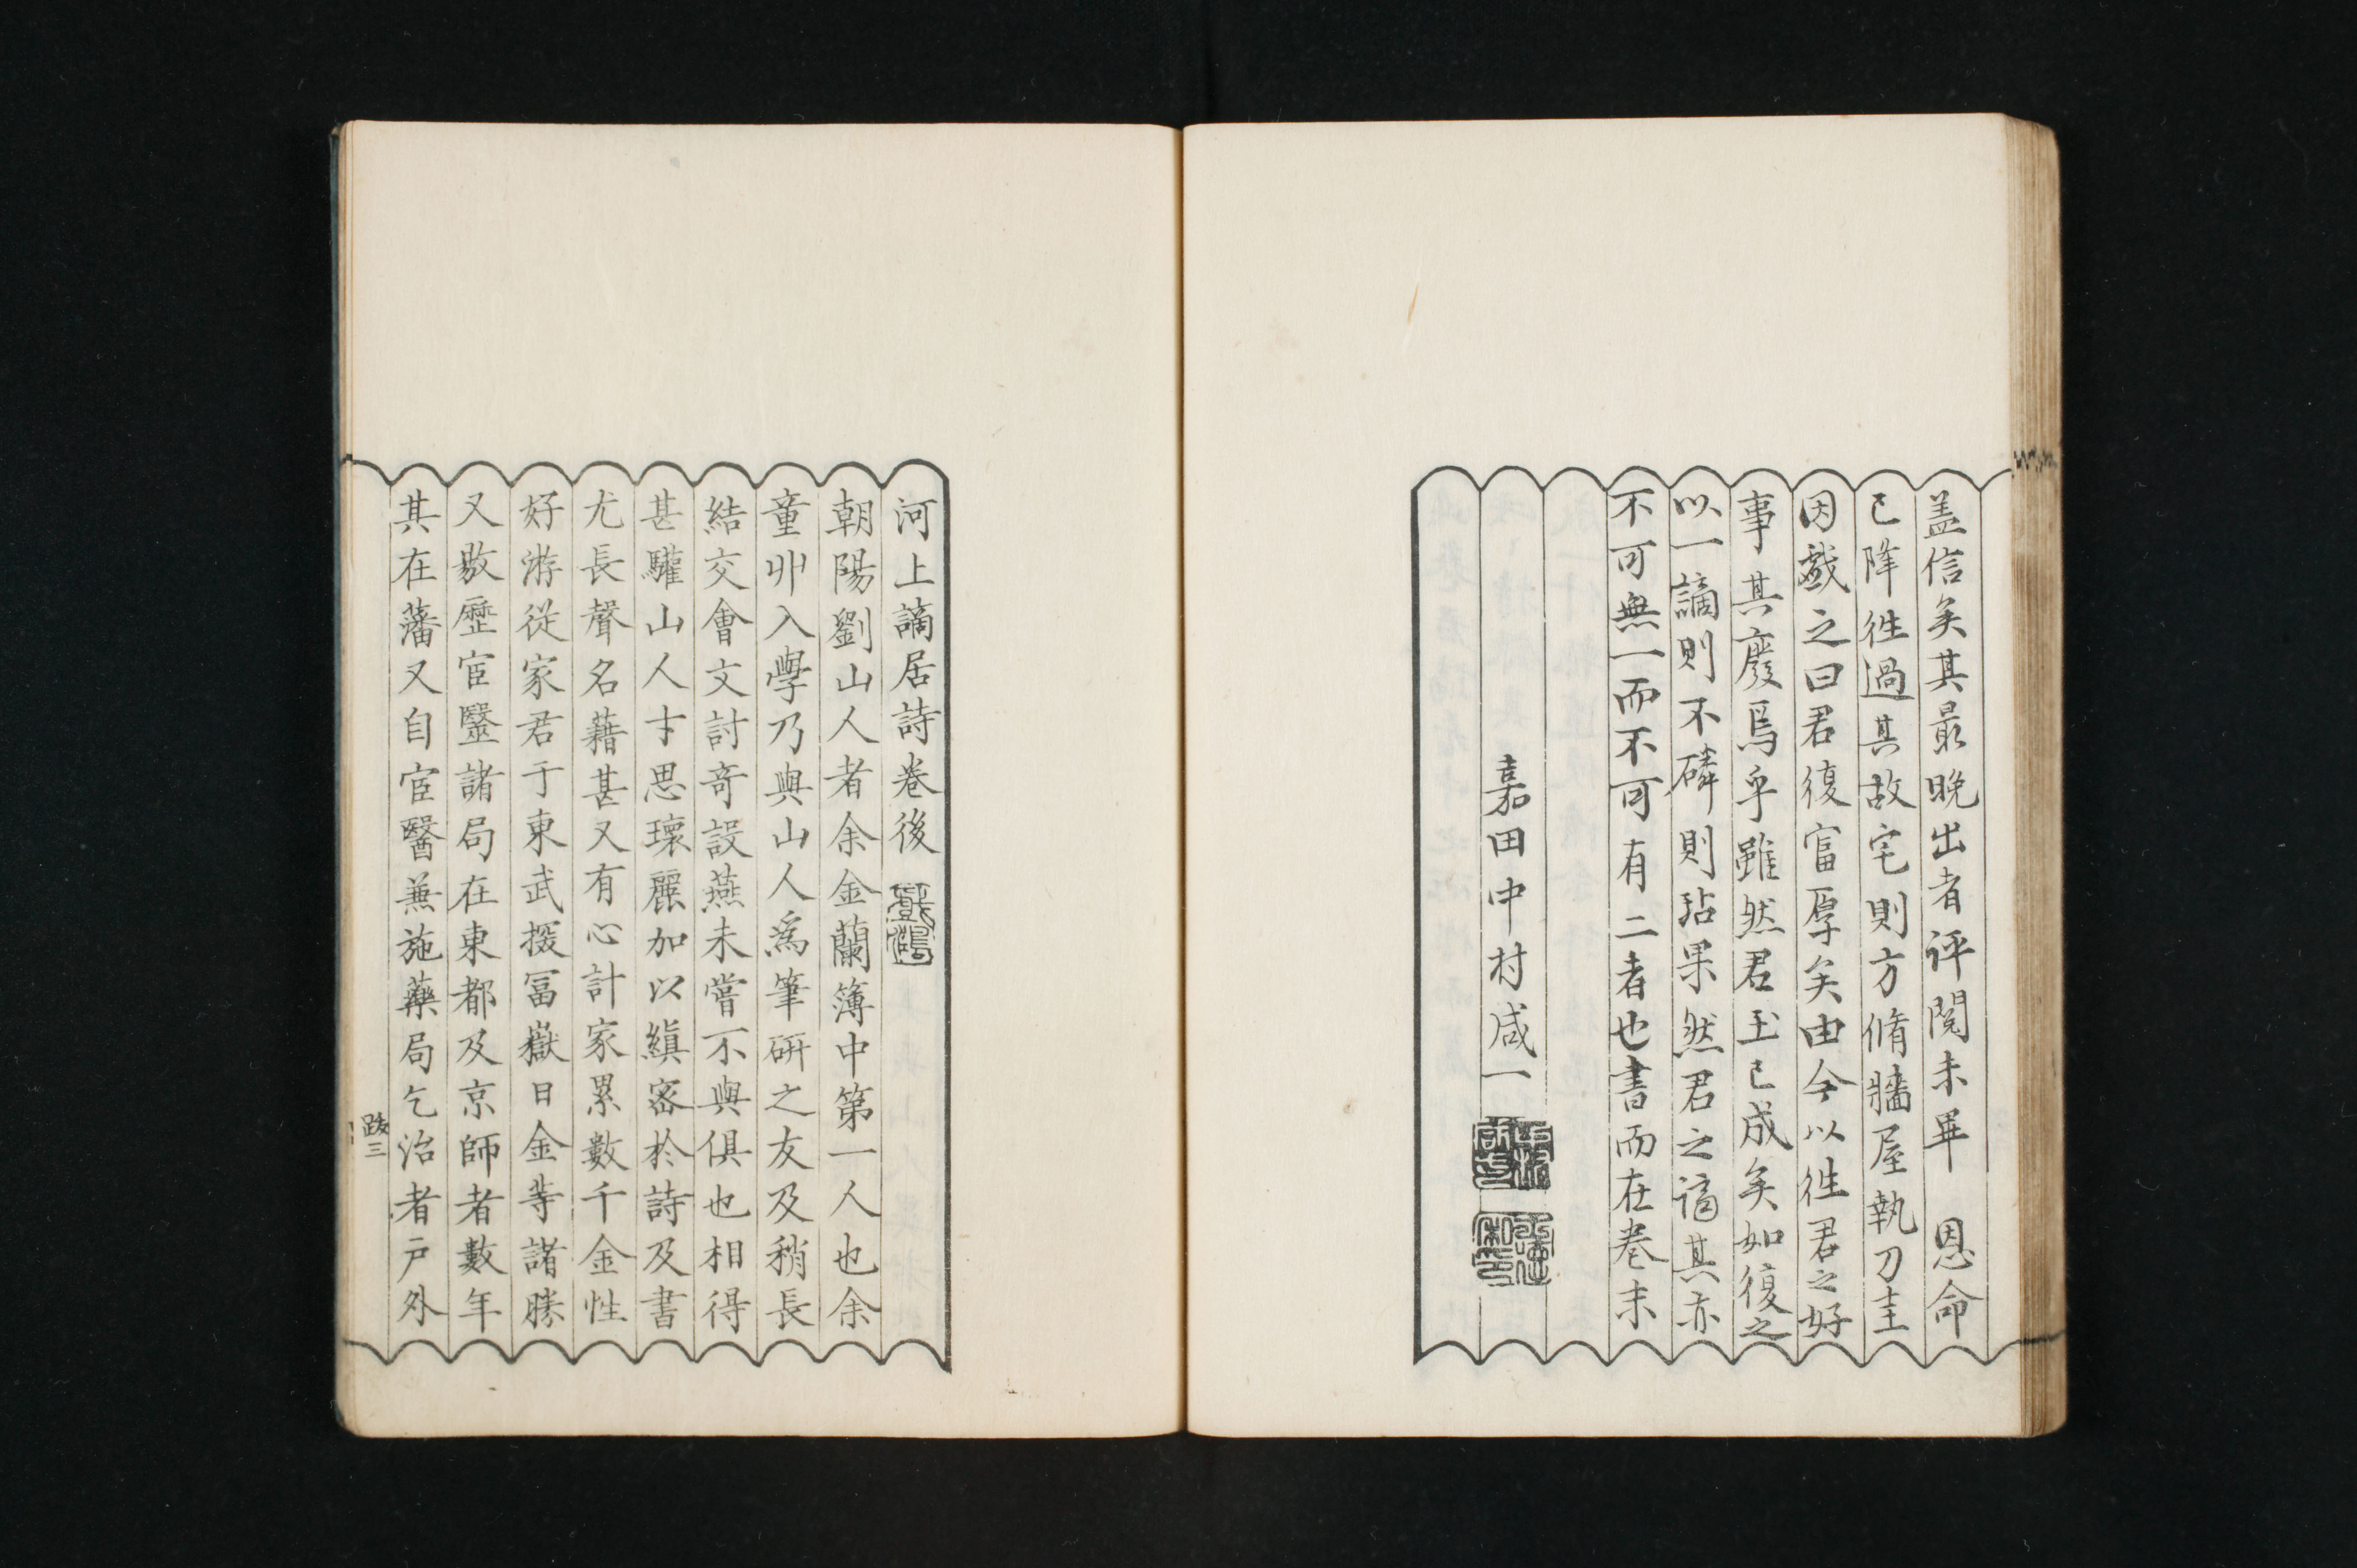 盖信矣其最晚出者评閲未畢　恩命
已降徃過其故宅則方脩牆屋執刀圭
因戯之曰君復富厚矣由今以徃君之好
事其廢焉乎雖然君玉已成矣如復之
以一謫則不磷則玷果然君之謫其亦
不可無一而不可有二者也書而在巻末
嘉田中村咸一
河上謫居詩巻後
朝陽劉山人者余金蘭簿中第一人也余
童丱入學乃與山人為筆研之友及稍長
結交會文討竒設燕未嘗不與俱也相得
甚驩山人才思瓌麗加以縝密於詩及書
尤長聲名藉甚又有心計家累數千金性
好游従家君于東武掇冨嶽日金等諸勝
又敭歴宦毉諸局在東都及京師者數年
其在藩又自宦醫兼施藥局乞治者戸外
跋三